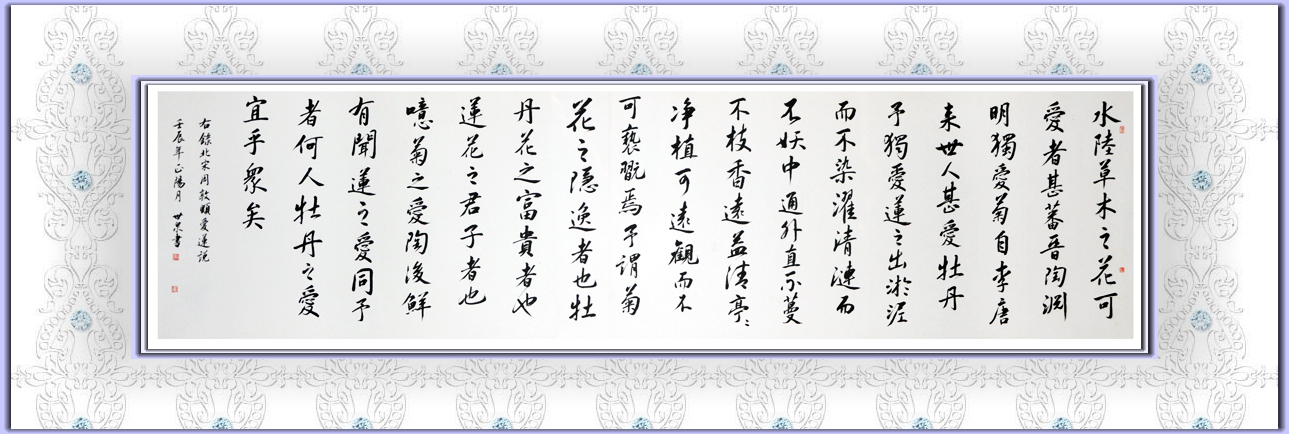 水陸草木之花可
愛者甚蕃晉陶淵
明獨愛菊自李唐
来世人甚愛牡丹
予獨愛蓮之出淤泥
而不染濯清漣而
不妖中通外直不蔓
不枝香遠益清亭〻
净植可遠觀而不
可褻翫焉予謂菊
花之隱逸者也牡
丹花之富貴者也
蓮花之君子者也
噫菊之愛陶後鮮
有聞蓮之愛同予
者何人牡丹之愛
宜乎眾矣
右錄北宋周敦頤愛蓮說
壬辰年正陽月 世泉書